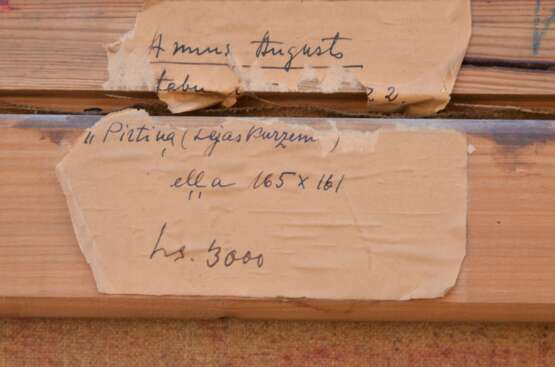 Annus Augusts
tabu 22.
„Pirtiņa (Lejas Kurzem )
eļļa 165 x 161
Ls. 3000